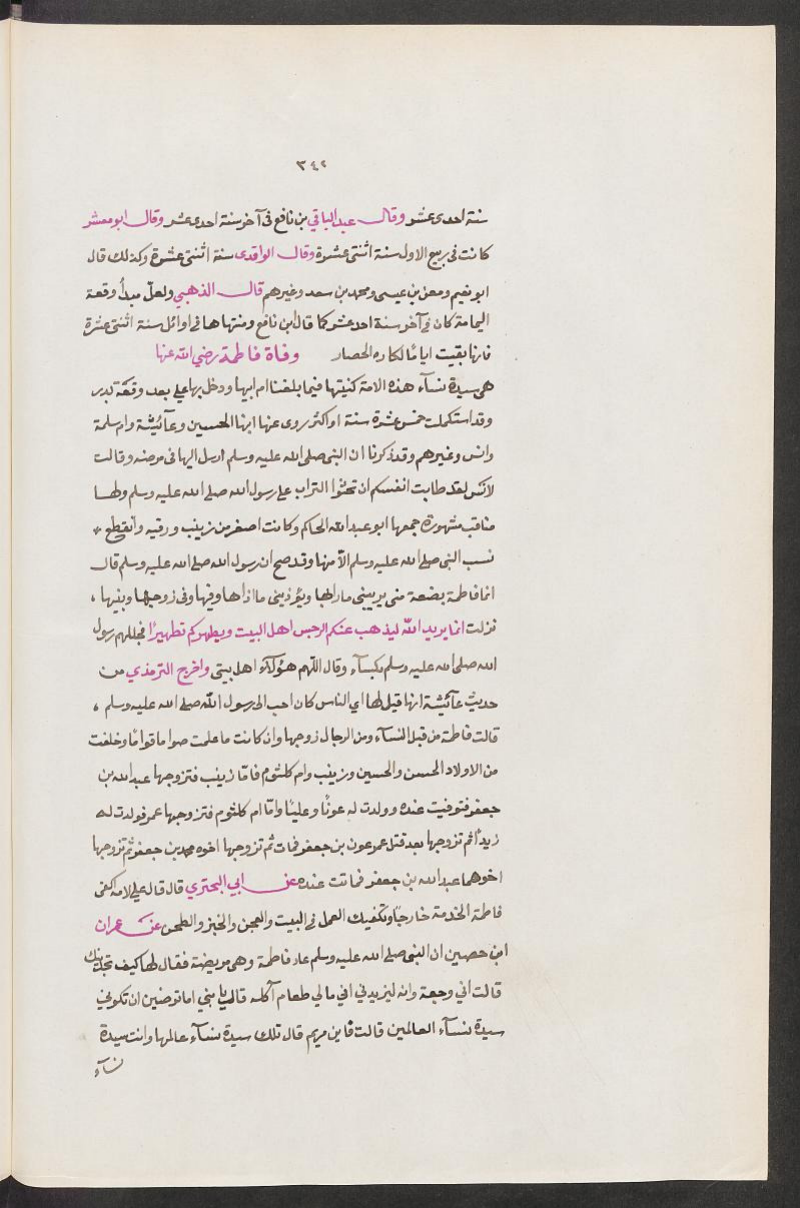 ٣٤٢
سنة احدى عشر وقال عبد الباقي بن نافع فى آخر سنة احدى عشر وقال ابو معشر
كانت فى ربيع الاول سنة اثنتى عشرة وقال الواقدى سنة اثنتى عشرة وكذلك قال
ابو نعيم ومعن بن عيسى ومحمد بن سعد وغيرهم قال الذهبي ولعلّ مبدأ وقعة
اليمامة كان فى آخر سنة احد عشر كما قال ابن نافع ومنتهاها فى اوائل سنة اثنتى عشرة
فانها بقيت اياما لمكان الحصار وفاة فاطمة رضي الله عنها
هى سيدة نسآء هذه الامة كنيتها فيما بلغنا ام ابيها ودخل بها علي بعد وقعة بدر
وقد استكملت خمس عشرة سنة او اكثر روى عنها ابنها الحسين وعآئيشة وام سلمة
وانس وغيرهم وقد ذكرنا ان النبى صلى الله عليه وسلم ارسل اليها فى مرضه وقالت
لانس لقد طابت انفسكم ان تحثوا التراب على رسول الله صلى الله عليه وسلم ولها
مناقب مشهورة جمعها ابو عبد الله الحاكم وكانت اصغر من زينب ورقيه وانقطع
نسب النبى صلى الله عليه وسلم الا منها وقد صح ان رسول الله صلى الله عليه وسلم قال
انما فاطمة بضعة منى يريبنى ما رابها ويؤذينى ما اذاها وفيها وفى زوجها وبنيها ،
نزلت انما يريد الله ليذهب عنكم الرجس اهل البيت ويطهركم تطهيرا فجللهم رسول
الله صلى الله عليه وسلم بكسآء وقال اللهم هؤلآء اهل بيتى واخرج الترمذي من
حديث عآئيشة انها قيل لها اي الناس كان احب الى رسول الله صلى الله عليه وسلم ،
قالت فاطمة من قبل النسآء ومن الرجال زوجها وان كانت ما علمت صواما قواما وخلفت
من الاولاد الحسن والحسين وزينب وام كلثوم فامّا زينب فتزوجها عبد الله بن
جعفر فتوفيت عنده وولدت له عونًا وعليًا وامّا ام كلثوم فتزوجها عمر فولدت له
زيدًا ثم تزوجها بعد قتل عمر عون بن جعفر فمات ثم تزوجها اخوه محمد بن جعفر ثم تزوجها
اخوهما عبد الله بن جعفر فماتت عنده عن ابي البحتري قال قال علي لامه اكفى
فاطمة الخدمة خارجًا وتكفيك العمل فى البيت والعجن والخبز والطحن عن عمران
ابن حصين ان النبى صلى الله عليه وسلم عاد فاطمة وهى مريضة فقال لها كيف تجدينك
قالت اني وجعة وانه ليزيدني اني مالي طعام آكله قال يا بني اما ترضين ان تكونى
سيدة نسآء العالمين قالت فاين مريم قال تلك سيدة نسآء عالمها وانت سيدة
نسآء